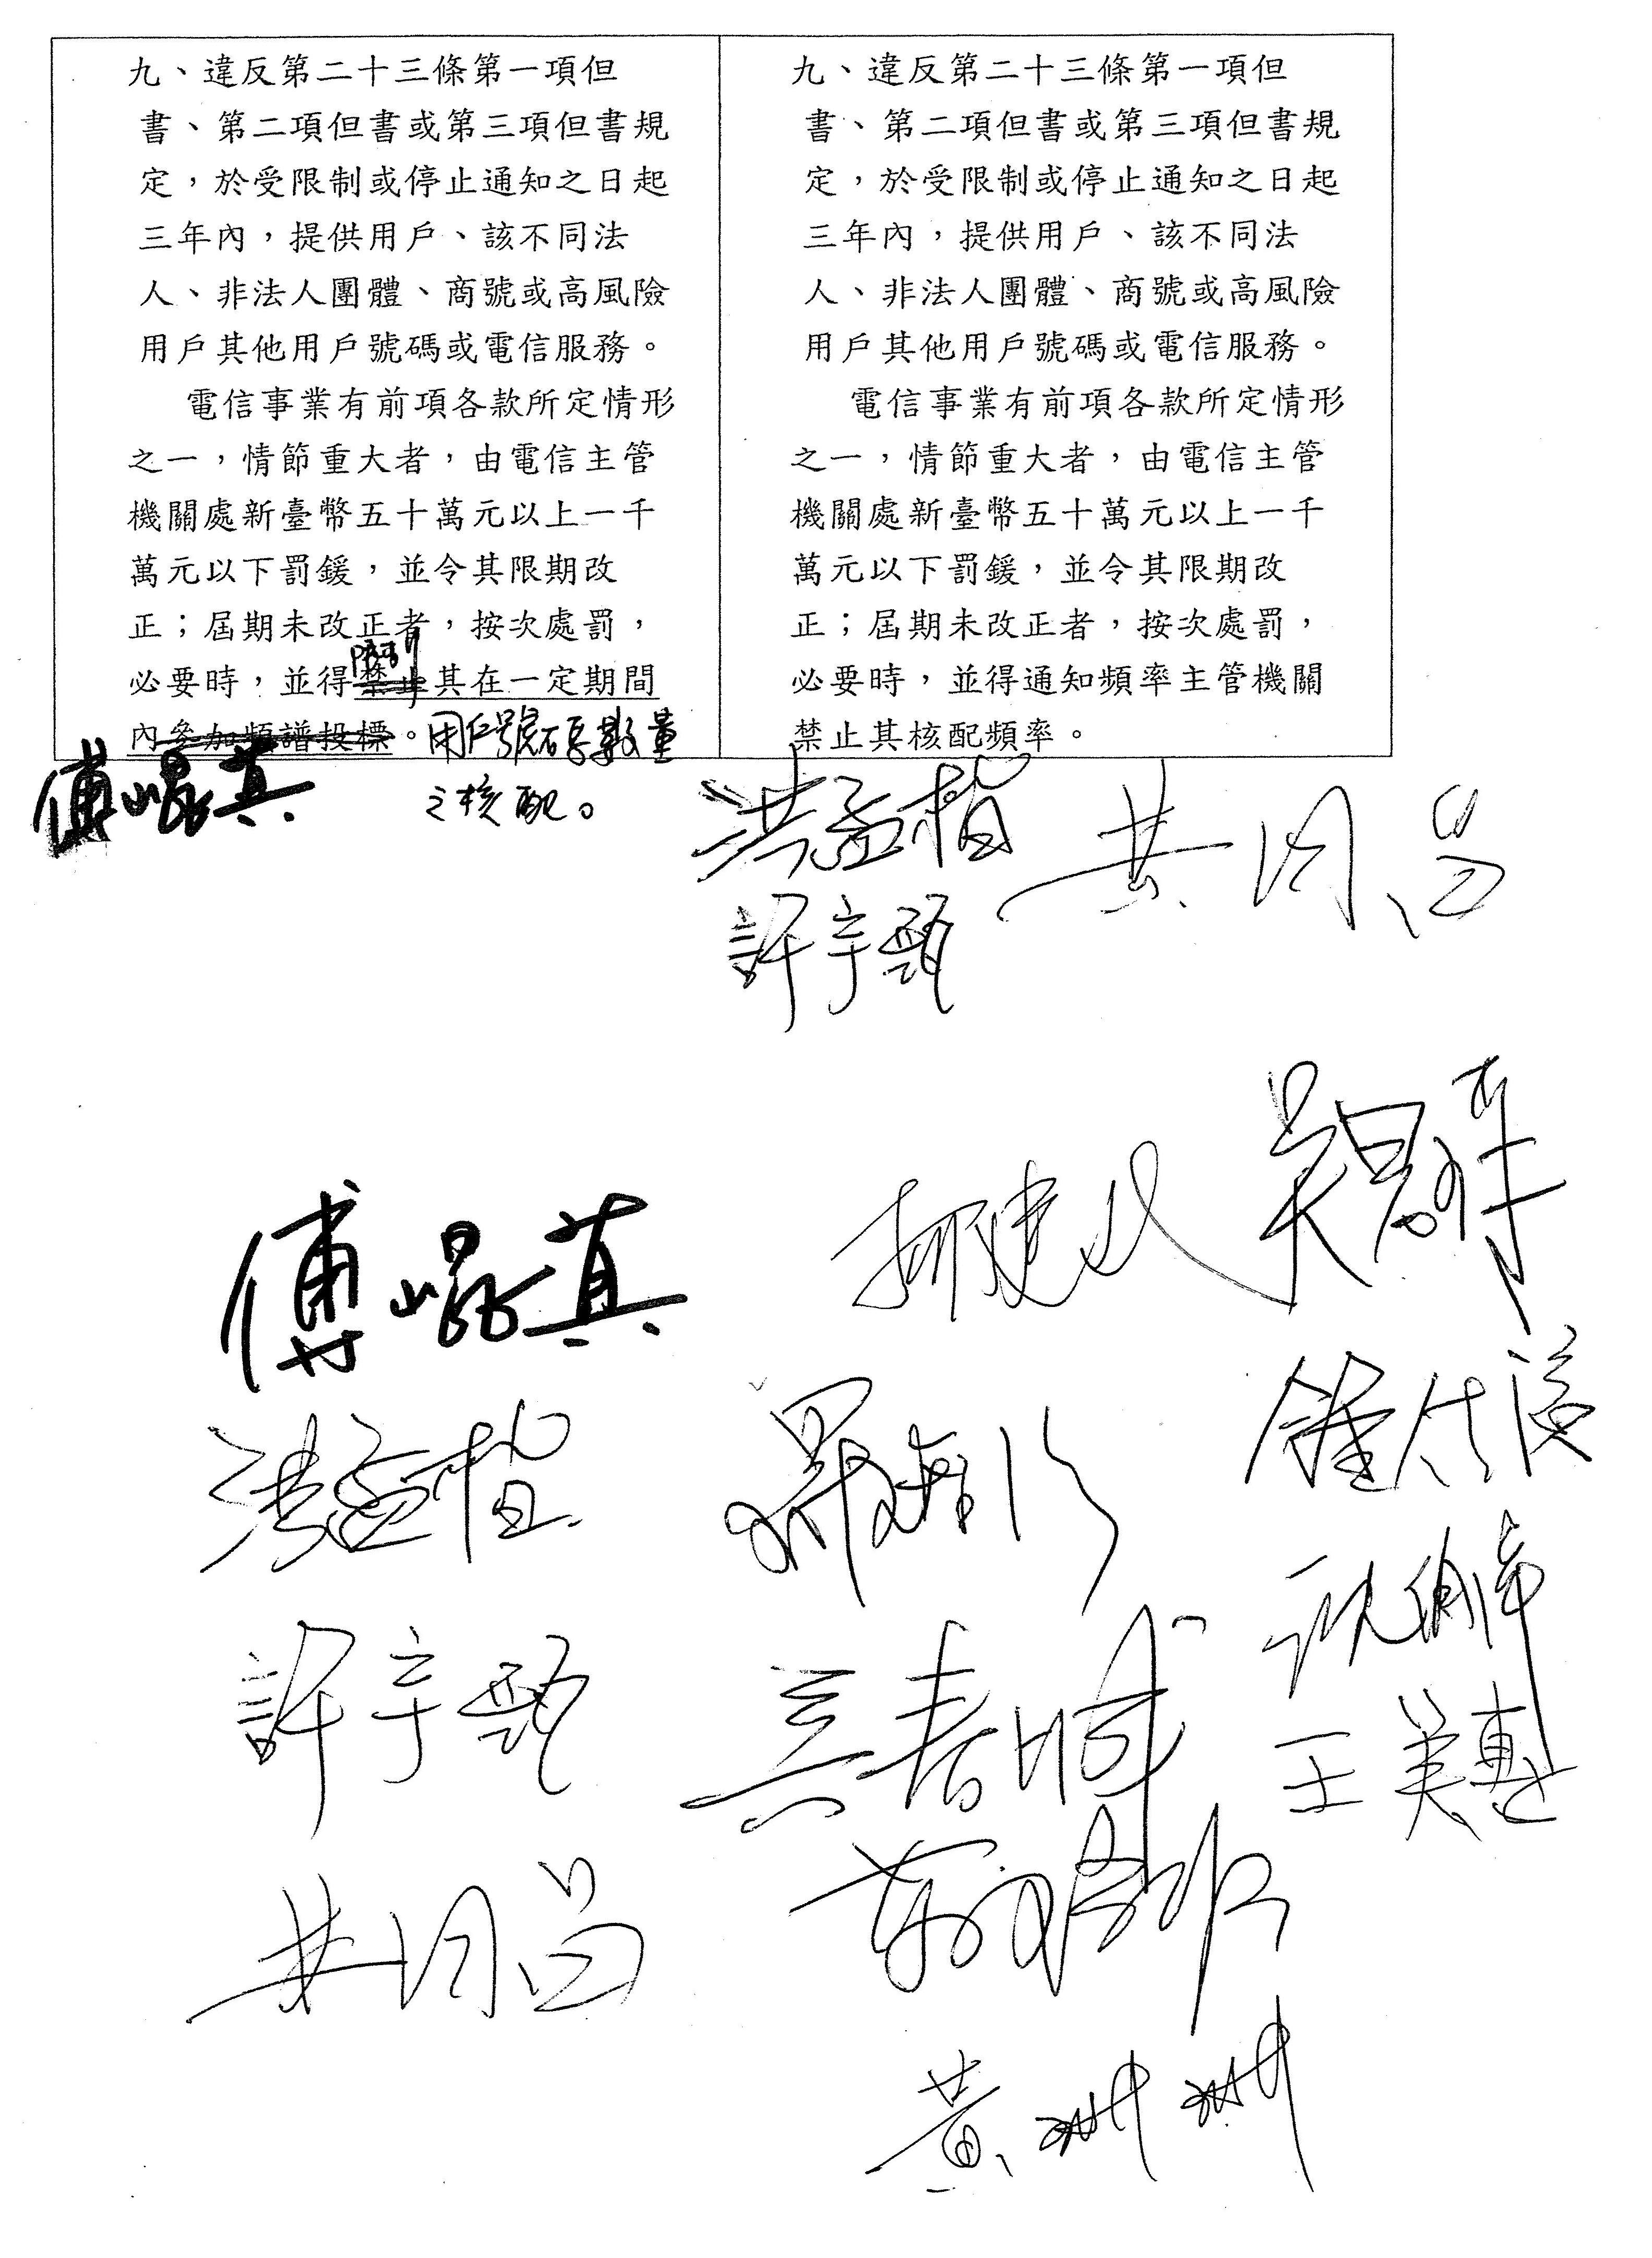 九、違反第二十三條第一項但
書、第二項但書或第三項但書規
定，於受限制或停止通知之日起
三年內，提供用戶、該不同法
人、非法人團體、商號或高風險
用戶其他用戶號碼或電信服務。
電信事業有前項各款所定情形
之一，情節重大者，由電信主管
機關處新臺幣五十萬元以上一千
萬元以下罰鍰，並令其限期改
正；屆期未改正者，按次處罰，
限制
必要時，並得禁止其在一定期間
內參加頻譜投標。用戶號碼數量
之核配。
九、違反第二十三條第一項但
書、第二項但書或第三項但書規
定，於受限制或停止通知之日起
三年內，提供用戶、該不同法
人、非法人團體、商號或高風險
用戶其他用戶號碼或電信服務。
電信事業有前項各款所定情形
之一，情節重大者，由電信主管
機關處新臺幣五十萬元以上一千
萬元以下罰鍰，並令其限期改
正；屆期未改正者，按次處罰，
必要時，並得通知頻率主管機關
禁止其核配頻率。
傅崐萁
洪孟楷
許宇甄
傅崐萁
柯建
吳思
洪孟楷
許宇甄
王美惠
黃珊珊